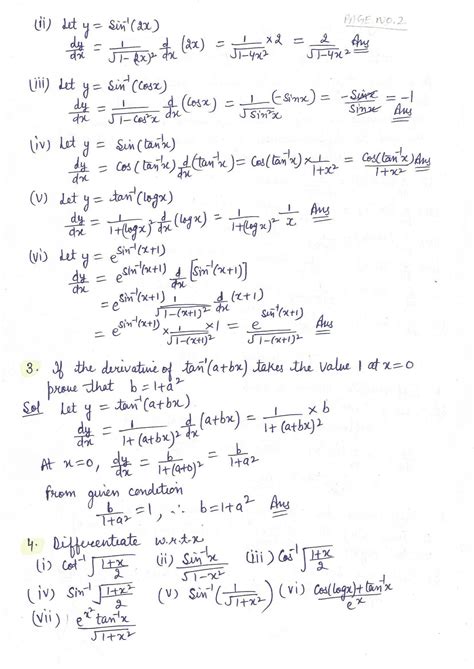 PAGE NO.2
(ii) Let y = Sin⁻¹(2x)
dy/dx = 1/√(1-(2x)²) d/dx (2x) = 1/√(1-4x²) × 2 = 2/√(1-4x²) Ans
(iii) Let y = Sin⁻¹(Cosx)
dy/dx = 1/√(1-Cos²x) d/dx (Cosx) = 1/√(Sin²x) (-Sinx) = -Sinx/Sinx = -1 Ans
(iv) Let y = Sin(tan⁻¹x)
dy/dx = Cos(tan⁻¹x) d/dx (tan⁻¹x) = Cos(tan⁻¹x) × 1/(1+x²) = Cos(tan⁻¹x)/(1+x²) Ans
(v) Let y = tan⁻¹(logx)
dy/dx = 1/(1+(logx)²) d/dx (logx) = 1/(1+(logx)²) 1/x Ans
(vi) Let y = e^(Sin⁻¹(x+1))
dy/dx = e^(Sin⁻¹(x+1)) d/dx [Sin⁻¹(x+1)]
= e^(Sin⁻¹(x+1)) 1/√(1-(x+1)²) d/dx (x+1)
= e^(Sin⁻¹(x+1)) × 1/√(1-(x+1)²) × 1 = e^(Sin⁻¹(x+1))/√(1-(x+1)²) Ans
3. If the derivative of tan⁻¹(a+bx) takes the value 1 at x=0
prove that b = 1+a²
Sol Let y = tan⁻¹(a+bx)
dy/dx = 1/(1+(a+bx)²) d/dx (a+bx) = 1/(1+(a+bx)²) × b
At x=0, dy/dx = b/(1+(a+0)²) = b/(1+a²)
From given condition
b/(1+a²) = 1, ∴ b = 1+a² Ans
4. Differentiate w.r.t.x
(i) Cot⁻¹√((1+x)/2) (ii) Sin⁻¹x/√(1-x²) (iii) Cos⁻¹√((1+x)/2)
(iv) Sin⁻¹√((1+x²)/2) (v) Sin⁻¹(1/√(1+x²)) (vi) (Cos(logx)+tan⁻¹x)/e^x
(vii) e^(x²) tan⁻¹x/√(1+x²)